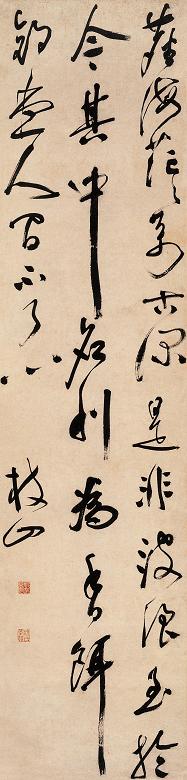 塵海茫々萬古深是非波浪至於
今其中名利為香餌
釣盡人間不了心
枝山